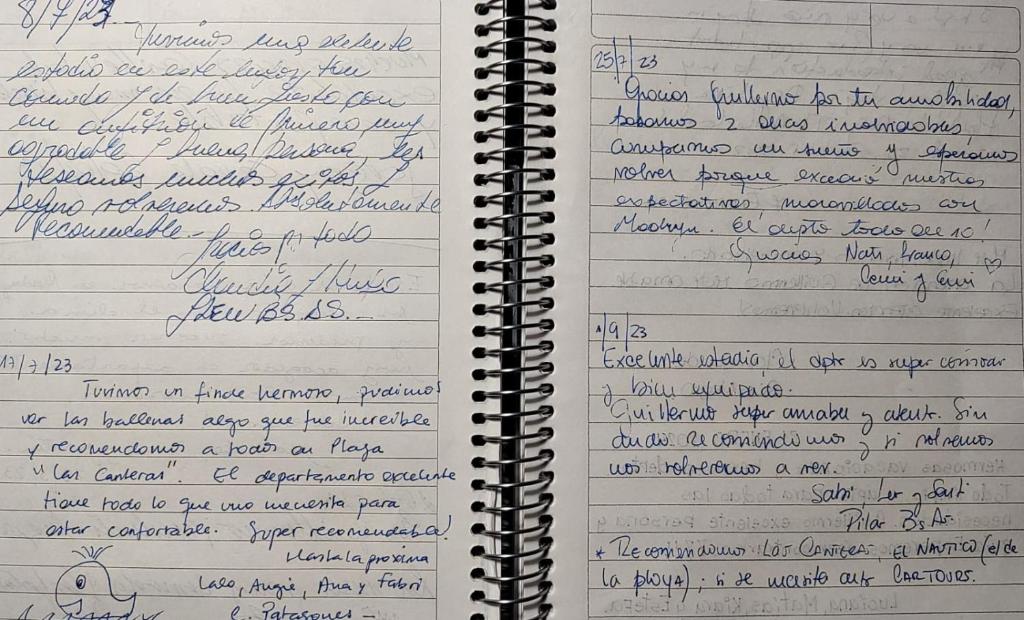 8/7/23
Tuvimos una excelente
estadía en este lugar, tan
comodo y de buen gusto con
un anfitrión de primera, muy
agradable y buena persona, les
deseamos muchos exitos y
seguro volveremos. Absolutamente
Recomendable.-
Gracias p/ todo
Claudia y Hugo
BS.AS.-
17/7/23
Tuvimos un finde hermoso, pudimos
ver las ballenas algo que fue increible
y recomendamos a todos en Playa
"Las Canteras". El departamento excelente
tiene todo lo que uno necesita para
estar confortable. Super recomendable!
Hasta la proxima
Lalo, Angie, Ana y Fabri
C. Patagones -
25/7/23
Gracias Guillermo por tu amabilidad,
pasamos 2 dias inolvidables,
cumplimos un sueño y esperamos
volver porque excedió nuestras
expectativas, maravillados con
Madryn. El depto todo de 10!
Gracias Nati, Franco,
y
1/9/23
Excelente estadía, el dpto es super comodo
y bien equipado.
Guillermo super amable y atent. Sin
duda Recomendamos y si volvemos
nos volveremos a ver.
Sabri y Santi
Pilar Bs As.
* Recomendamos: LOS CANTERA, EL NAUTICO (el de
la playa); si se necesita auto CARTOURS.